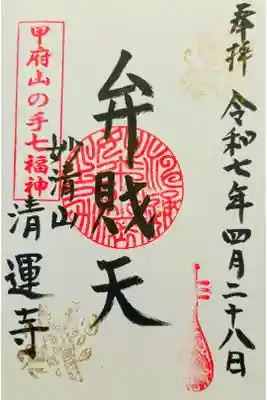 奉拝
令和七年四月二十八日
弁財天
甲府山の手七福神
妙清山
清運寺